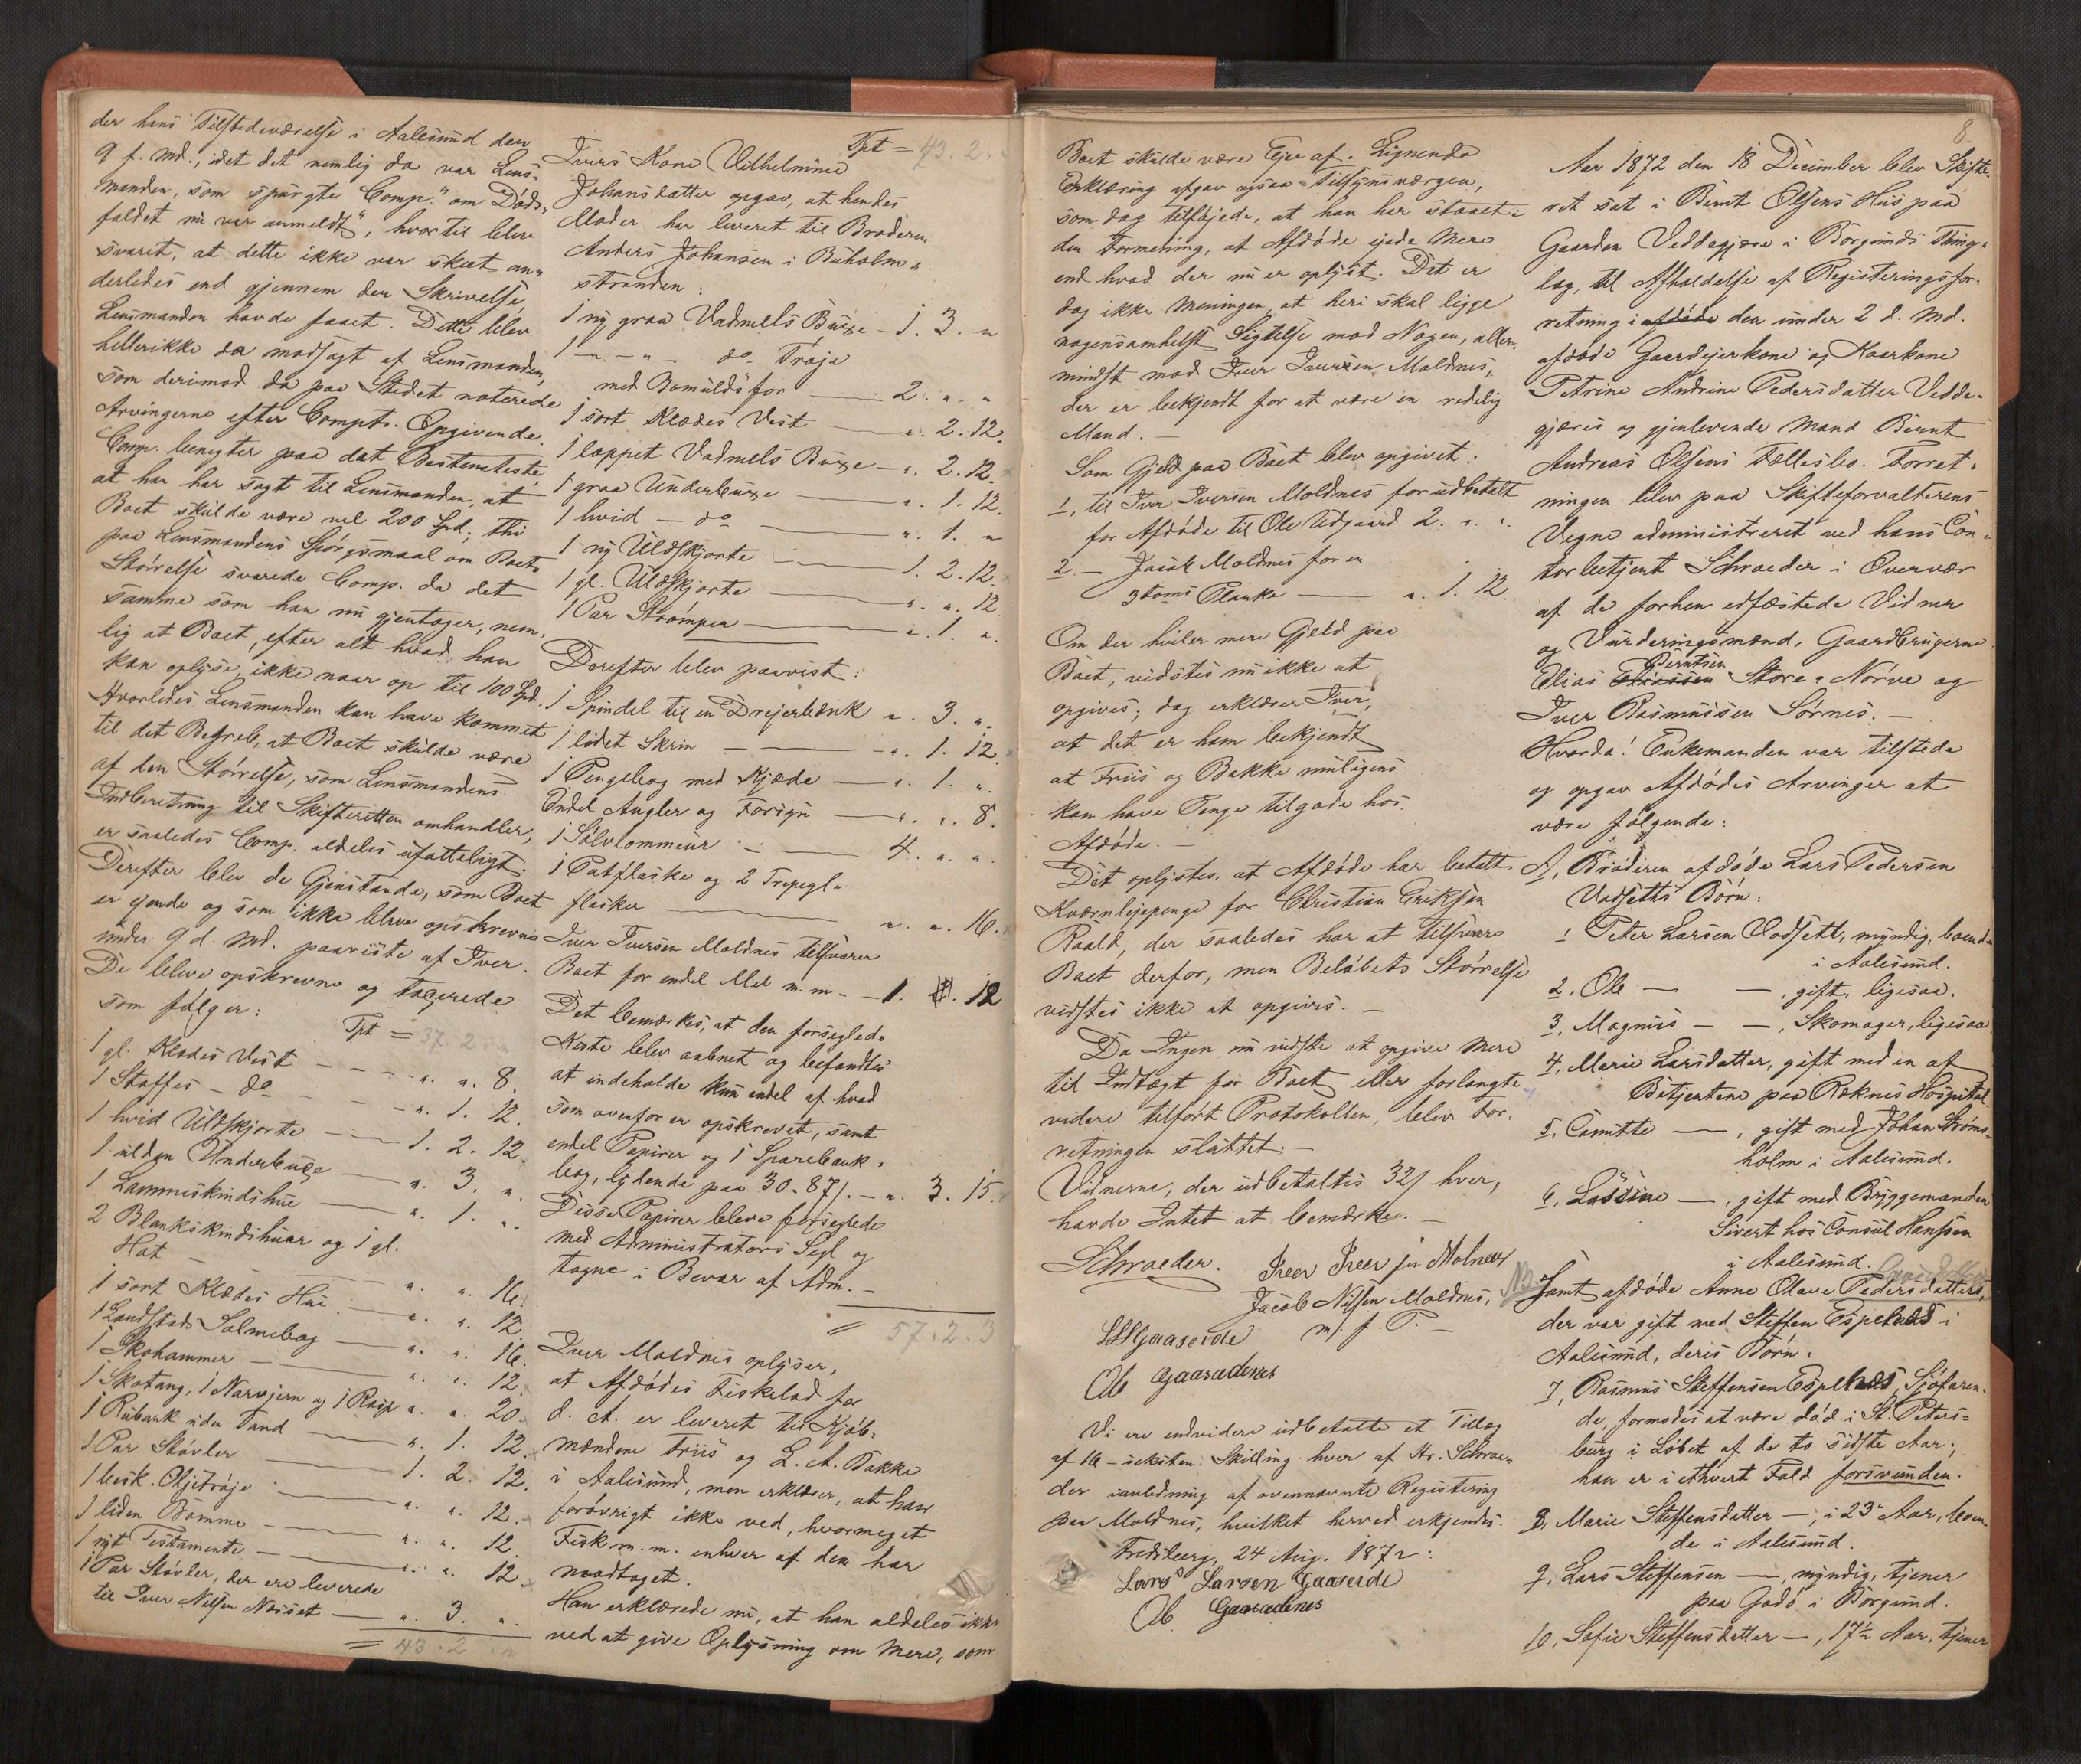 der hans Tilstedeværelse i Aalesund den
9 f. Md., idet det nemlig da var Lens-
manden, som spurgte Comp. "om Døds-
faldet nu var anmeldt", hvortil blev
svaret, at dette ikke var skeet an-
derledes end gjennem den Skrivelse,
Lensmanden havde faaet. Dette blev
hellerikke da modsagt af Lensmanden,
som derimod da paa Stedet noterede
Arvingerne efter Compts. Opgivende.
Comp. benegter paa det Bestemteste,
at han har sagt til Lensmanden, at
Boet skulde være vel 200 Spd; thi
paa Lensmandens Spørgsmaal om Boets
Størrelse svarede Comp. da det
samme som han nu gjentager, nem-
lig at Boet, efter alt hvad han
kan oplyse, ikke naar op til 100 Spd.
Hvorledes Lensmanden kan have kommet
til det Begreb, at Boet skulde være
af den Størrelse, som Lensmandens
Indberetning til Skifteretten omhandler,
er saaledes Comp. aldeles ufatteligt.
Derefter blev de Gjenstande, som Boet
er eiende og som ikke bleve opskrevne
under 9 d. Md. paaviste af Iver.
De bleve opskrevne og taxerede
som følger:
Tpt = 37. 2. "
1 gl. Klædes Vest - - - ". ". 8.
1 Stoffes - do - - - ". 1. 12.
1 hvid Uldskjorte — 1. 2. 12.
1 ulden Underbuxe — ". 3. ".
1 Lammeskindshue — ". 1. ".
2 Blankskindshuer og 1 gl.
Hat — ". ". 16.
1 sort Klædes Hue — ". ". 12.
1 Landstads Salmebog — ". ". 16.
1 Skohammer — ". ". 12.
1 Skotang, 1 Narvjern og 1 Rasp ". ". 20.
1 Rubank uden Tand — ". 1. 12.
1 Par Støvler — 1. 2. 12.
1 besk. Oljetrøje — ". ". 12.
1 liden Bomme — ". ". 12.
1 nyt Testamente — ". ". 12.
1 Par Støvler, der ere leverede
til Iver Nilsen — ". 3. ".
= 43. 2. "
Tpt = 43. 2. "
Ivers Kone Vilhelmine
Johansdatter opgav, at hendes
Moder har leveret til Broderen
Anders Johansen i Buholm-
stranden:
1 ny graa Vadmels Buxe — 1. 3. "
1 — " — " — do Trøje
med Bomuldsfor — 2. ". "
1 sort Klædes Vest — ". 2. 12.
1 lappet Vadmels Buxe — ". 2. 12.
1 graa Underbuxe — ". 1. 12.
1 hvid — do — ". 1. "
1 ny Uldskjorte — 1. 2. 12.
1 gl. Uldskjorte — ". ". 12
1 Par Strømper — ". 1. ".
Derefter blev paavist:
1 Spindel til en Drejerbænk ". 3. ".
1 lidet Skrin — ". 1. 12.
1 Pengebog med Kjæde — ". 1. ".
Endel Angler og Forsyn — ". ". 8.
1 Sølvlommeur — 4. ". ".
1 Potflaske og 2 Trepegl-
flasker — ". ". 16.
Iver Iversen Moldnes tilsvarer
Boet for endel Mel m. m. — 1. ". 12
Det bemærkes, at den forseglede
Kiste blev aabnet og befandtes
at indeholde kun endel af hvad
som ovenfor er opskrevet, samt
endel Papirer og 1 Sparebank-
bog, lydende paa 30. 87/. — ". 3. 15.
Disse Papirer bleve forseglede
med Administrators Segl og
tagne i Bevar af Adm. —
= 57. 2. 3
Iver Moldnes oplyser,
at Afdødes Fiskelod for
d. A. er leveret til Kjøb-
mændene Friis og L. A. Bakke
i Aalesund, men erklærer, at han
forøvrigt ikke ved, hvormeget
Fisk m. m. enhver af dem har
modtaget.
Han erklærede nu, at han aldeles ikke
ved at give Oplysning om Mere, som
8.
Boet skulde være Ejer af. Lignende
Erklæring afgav ogsaa Tilsynsværgen,
som dog tilføjede, at han har staaet i
den Formening, at Afdøde ejede Mere
end hvad der nu er oplyst. Det er
dog ikke Meningen, at heri skal ligge
nogensomhelst Sigtelse mod Nogen, aller-
mindst mod Iver Iversen Moldnes,
der er bekjendt for at være en redelig
Mand. —
Som Gjeld paa Boet blev opgivet:
1, til Iver Iversen Moldnes forudbetalt
for Afdøde til Ole Udgaard 2. ". ".
2. — Jacob Moldnes for en
3 toms Planke — ". 1. 12.
Om der hviler mere Gjeld paa
Boet, vidstes nu ikke at
opgives; dog erklærer Iver,
at det er ham bekjendt
at Friis og Bakke muligens
kan have Penge tilgode hos
Afdøde. —
Det oplystes, at Afdøde har betalt
Kværnlejepenge for Christian Eriksen
Roald, der saaledes har at tilsvare
Boet derfor, men Beløbets Størrelse
vidstes ikke at opgives. —
Da Ingen nu vidste at opgive Mere
til Indtægt for Boet eller forlangte
videre tilført Protokollen, blev For-
retningen sluttet. —
Vidnerne, der udbetaltes 32/ hver,
havde Intet at bemærke. —
Schroeder. Iver Iver sen Molnes
Jacob Nilsen Moldnes,
m. f. P. —
LLGaaseide
Ob Gaasadnes
Vi ere endvidere udbetalte et Tillæg
af 16 - seksten Skilling hver af Hr. Schroe-
der ianledning af ovennævnte Registering
paa Moldnes, hvilket herved erkjendes.
Fredsberg, 24 Aug. 1872:
Lars Larsen Gaaseide
Ob. Gaasadnes
Aar 1872 den 18 December blev Skifte-
ret sat i Bernt Olsens Hus paa
Gaarden Veddegjære i Borgunds Thing-
lag, til Afholdelse af Registeringsfor-
retning i afdøde den under 2 d. Md.
afdøde Gaardejerkone og Kaarkone
Petrine Andrine Pedersdatter Vedde-
gjæres og gjenlevende Mand Bernt
Andreas Olsens Fællesbo. Forret-
ningen blev paa Skifteforvalterens
Vegne administreret ved hans Con-
torbetjent Schroeder i Overvær
af de forhen edfæstede Vidner
og Vurderingsmænd, Gaardbrugerne
Berntsen
Elias Eliassen Store-Nørve og
Iver Rasmussen Sørnes. —
Hvorda! Enkemanden var tilstede
og opgav Afdødes Arvinger at
være følgende:
A, Broderen afdøde Lars Pedersen
Vadsetts Børn:
1 Peter Larsen Vadsett, myndig, boende
i Aalesund.
2, Ole — —, gift, ligesaa.
3, Magnus — —, Skomager, ligesaa
4, Marie Larsdatter, gift med en af
Betjentene paa Reknes Hospital
5, Camitte —, gift med Johan Strøms-
holm i Aalesund.
6, Lassine —, gift med Bryggemanden
Sivert hos Consul Hansen
i Aalesund.
NB. Samt afdøde Anne Olave Pedersdatters,
der var gift med Steffen Espehæs i
Aalesund, deres Børn:
7, Rasmus Steffensen Espehæs, Sjøfaren-
de, formodes at være død i St. Peters-
burg i Løbet af de to sidste Aar;
han er i ethvert Fald forsvunden.
8, Marie Steffensdatter —, i 23de Aar, boen-
de i Aalesund.
9, Lars Steffensen —, myndig, tjener
paa Godø i Borgund.
10, Sofie Steffensdatter —, 17½ Aar, tjener